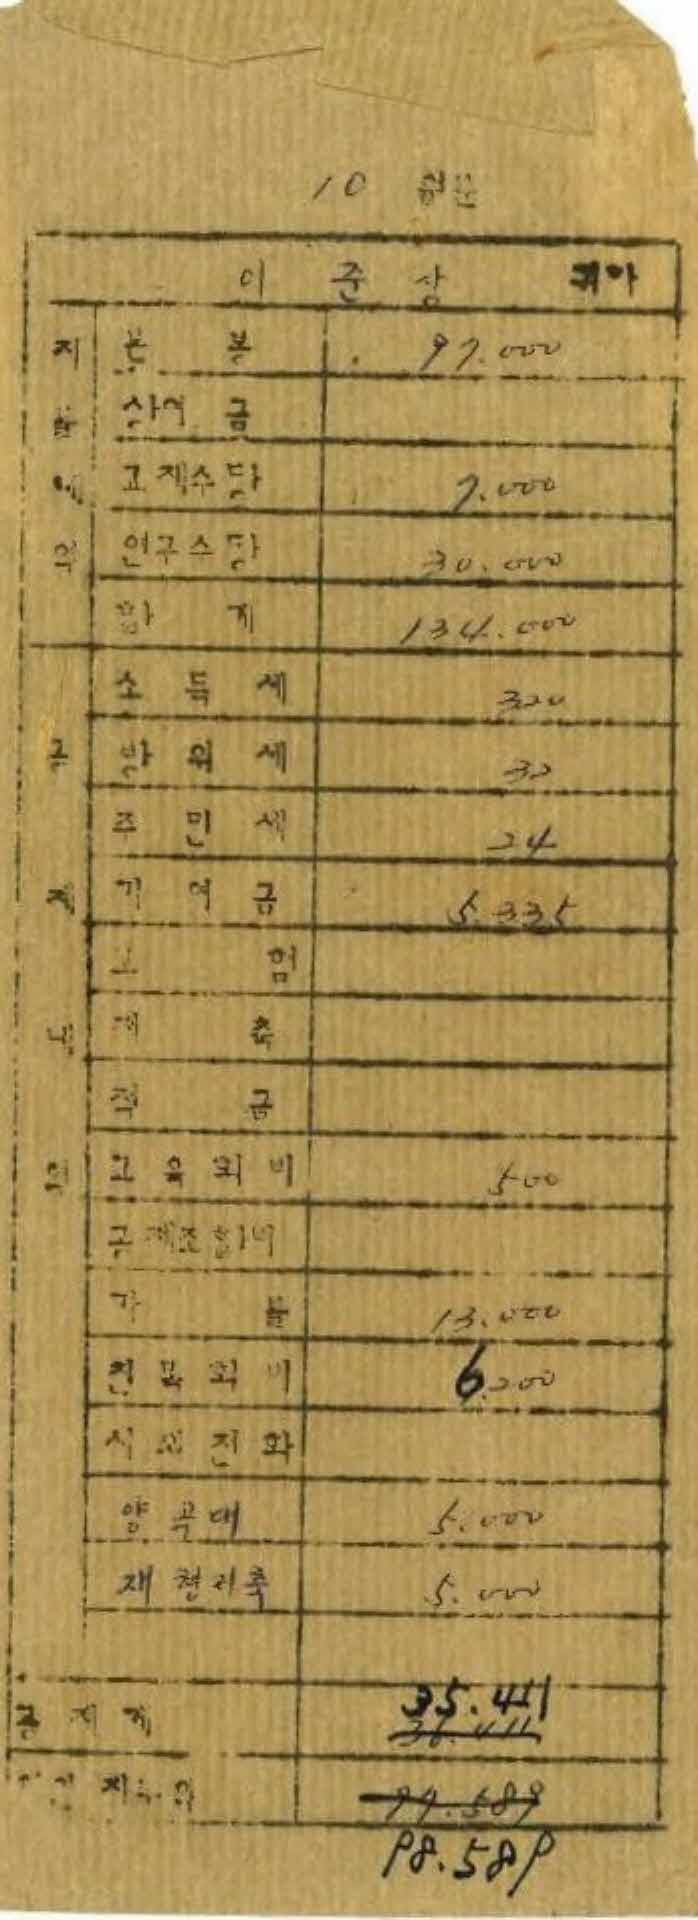 10 월분
이 준 상 귀하
지 본 봉 97.000
불 상여 금
내 고재수당 7.000
역 연구수당 30.000
합 계 134.000
소 득 세 320
공 방 위 세 32
주 민 세 24
제 기 여 금 5.335
보 험
내 저 축
적 금
역 교 육 회 비 500
공제조합비
가 불 13.000
친 목 회 비 6.200
시 외 전 화
양 곡 대 5.000
재 형 저 축 5.000
공 제 계 35.411
36.411
차인 지급액 97.589
98.589